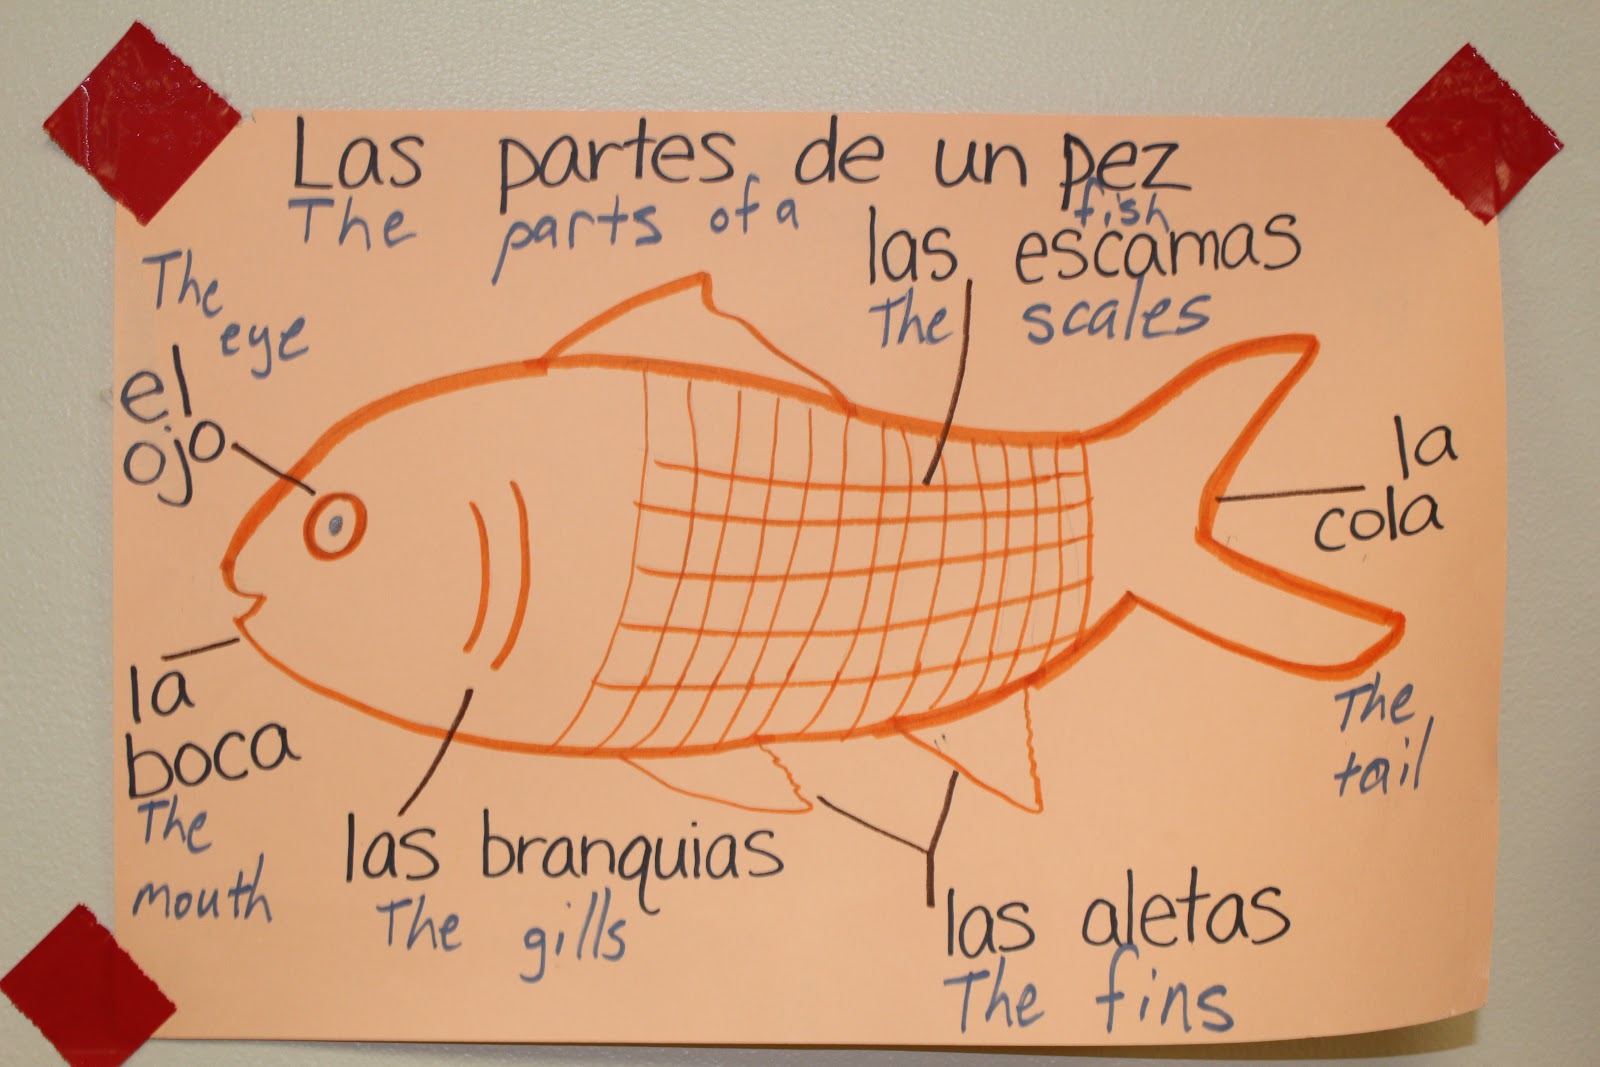 Las partes de un pez
The parts of a fish
las escamas
The scales
The
eye
el
ojo
la
cola
The
tail
la
boca
The
mouth
las branquias
The gills
las aletas
The fins